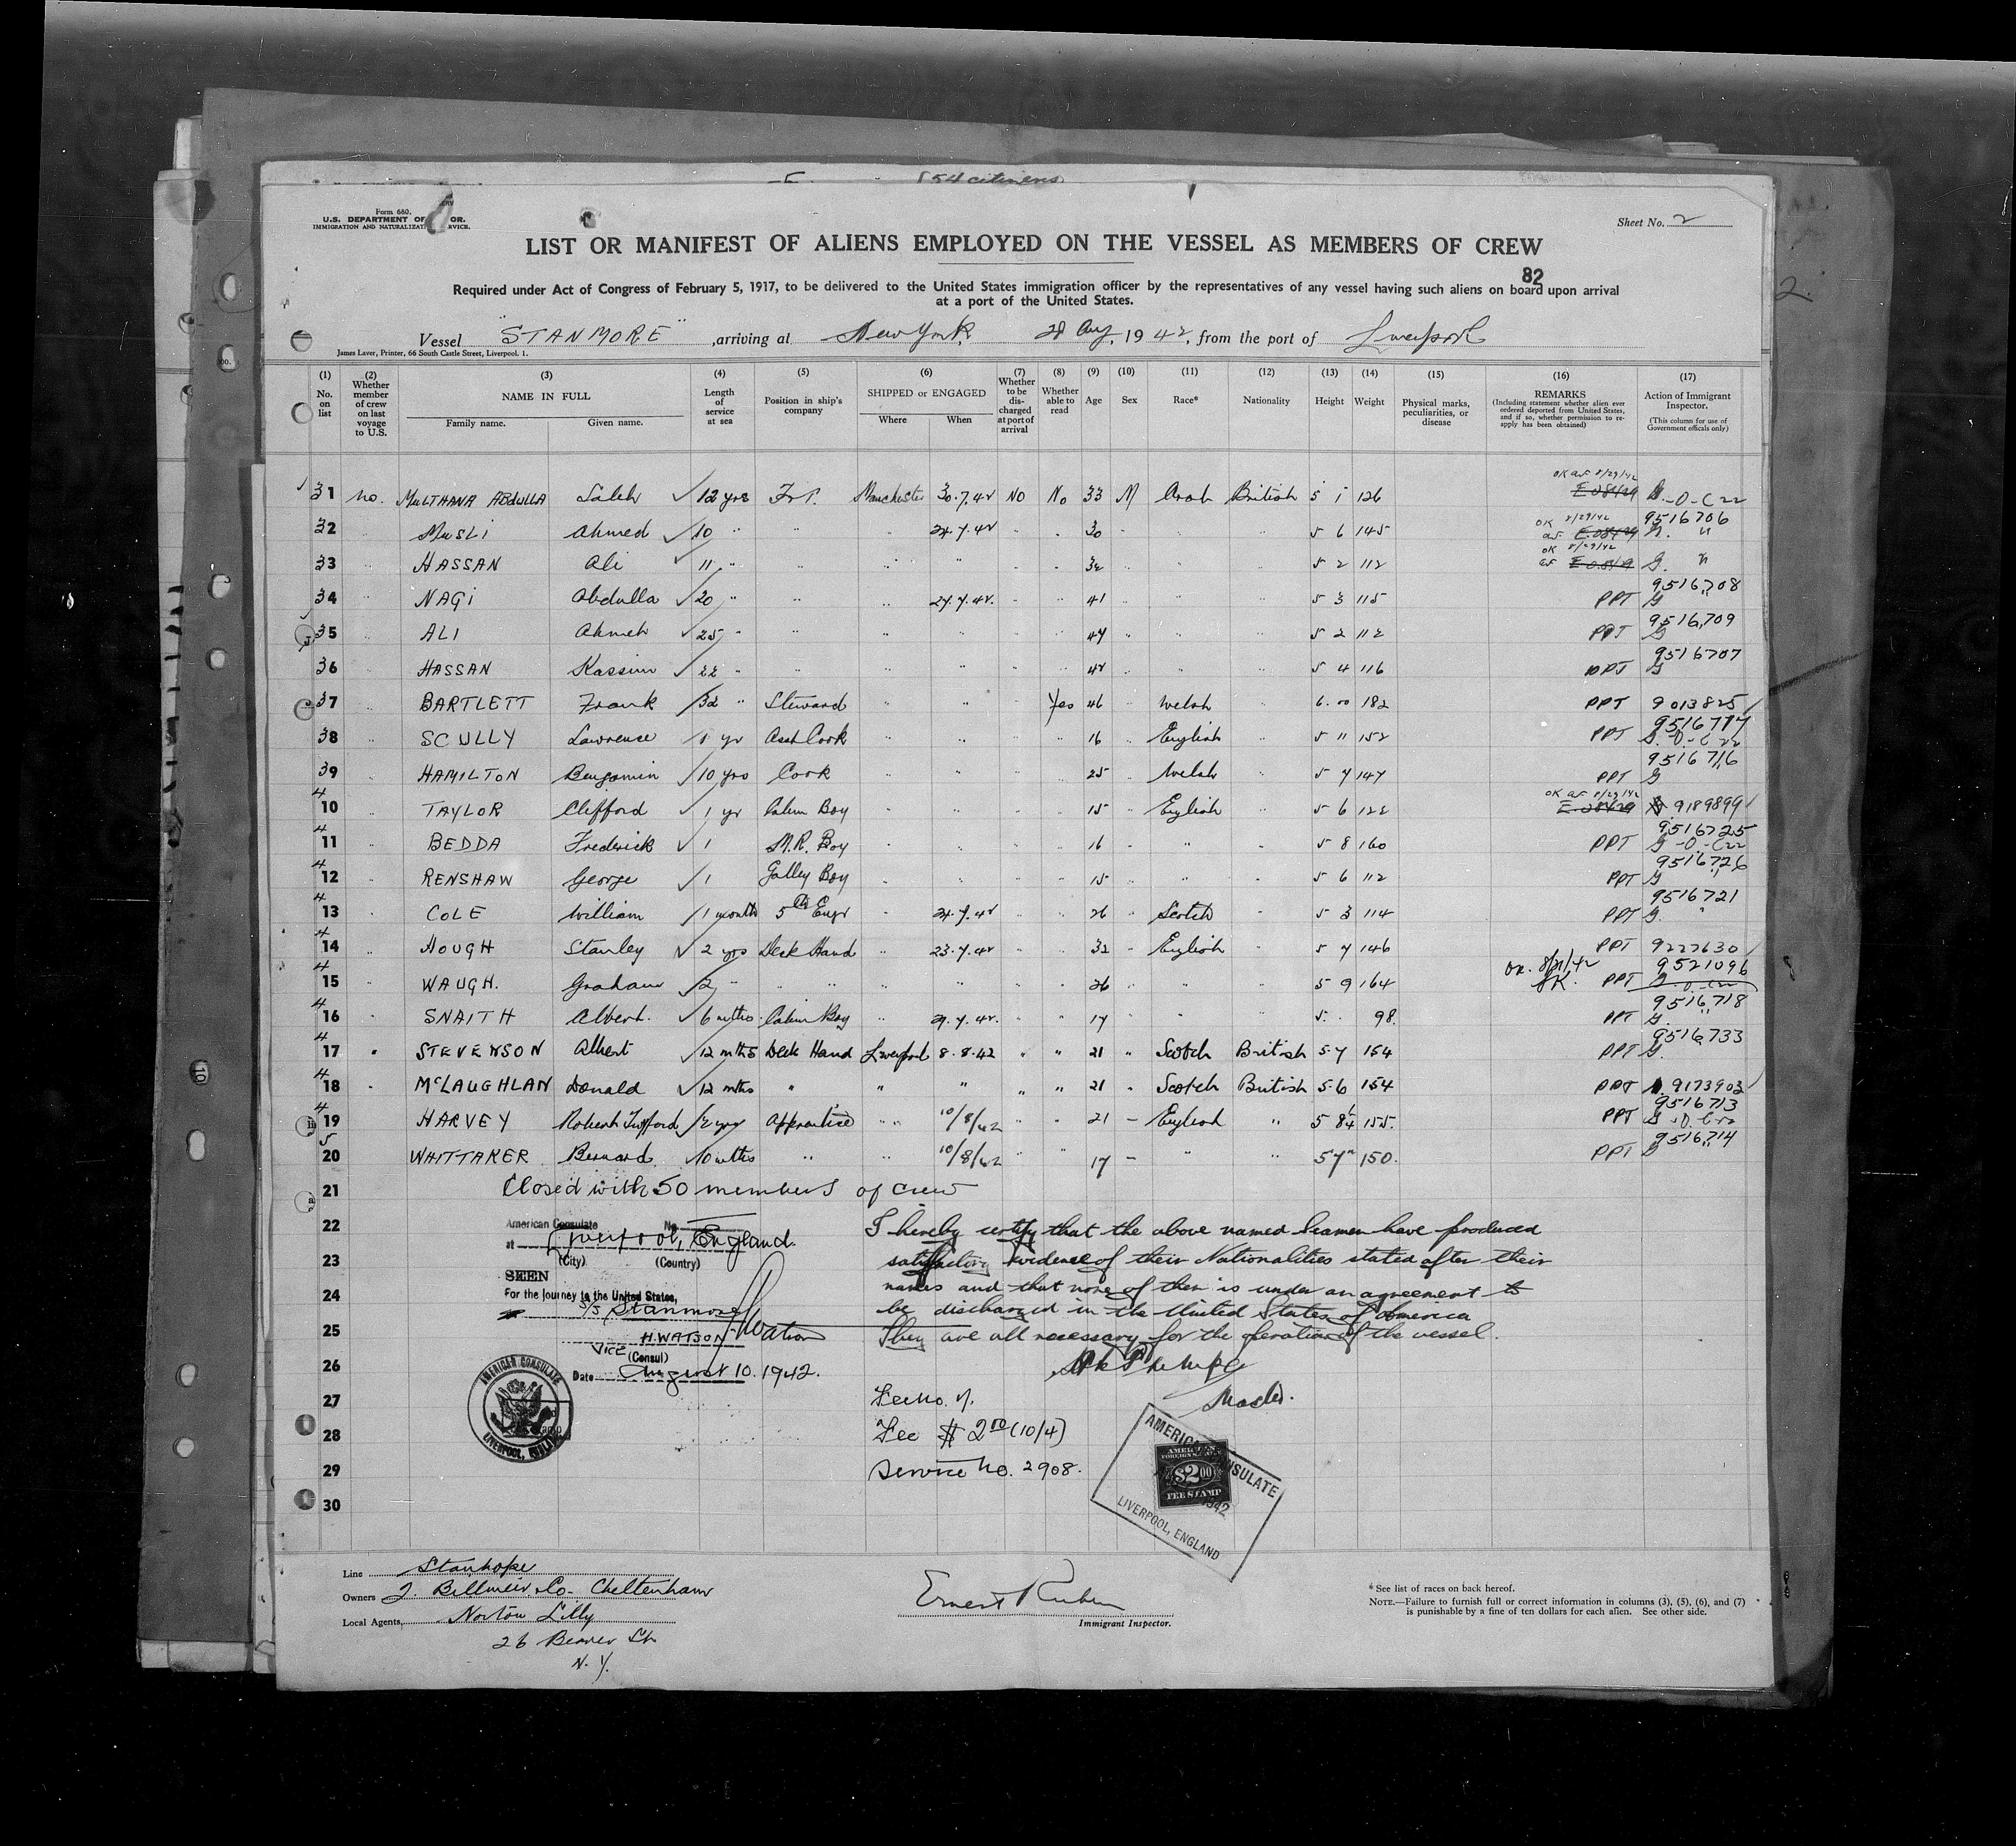 154 citizens
Form 680.
U.S. DEPARTMENT OF OR.
IMMIGRATION AND NATURALIZATI RVICE.
Sheet No. 2
LIST OR MANIFEST OF ALIENS EMPLOYED ON THE VESSEL AS MEMBERS OF CREW
82
Required under Act of Congress of February 5, 1917, to be delivered to the United States immigration officer by the representatives of any vessel having such aliens on board upon arrival
at a port of the United States.
Vessel "STANMORE", arriving at New York 28 Aug, 1942, from the port of Liverpool
James Laver, Printer, 66 South Castle Street, Liverpool. 1.
(1) No. on list
(2) Whether member of crew on last voyage to U.S.
(3) NAME IN FULL Family name. Given name.
(4) Length of service at sea
(5) Position in ship's company
(6) SHIPPED or ENGAGED Where When
(7) Whether to be discharged at port of arrival
(8) Whether able to read
(9) Age
(10) Sex
(11) Race*
(12) Nationality
(13) Height
(14) Weight
(15) Physical marks, peculiarities, or disease
(16) REMARKS (Including statement whether alien ever ordered deported from United States, and if so, whether permission to re-apply has been obtained)
(17) Action of Immigrant Inspector. (This column for use of Government officals only)
31 no. MULTHANA ABDULLA Saleh 12 yrs Manchester 30.7.42 NO No 33 M Arab British 5 1 126 OK 8/29/42
32 MUSLI Ahmed 10 " " 30 5 6 145 OK 8/29/42 9516706
33 HASSAN Ali 11 " " 5 2 112 OK 8/29/42 G. "
34 NAGI Abdulla 20 " " 41 5 3 115 PPT 9516708 G
35 ALI Ahmeh 25 " " 5 2 112 PPT 9516709 G
36 HASSAN Kassim 22 " " 5 4 116 PPT 9516707 G
37 BARTLETT Frank 32 " Steward Yes 46 Welsh 6.00 182 PPT 9013825
38 SCULLY Lawrence 1 yr Asst Cook 16 English 5 11 152 PPT G.-O-C 22
39 HAMILTON Benjamin 10 yrs Cook 25 Welsh 5 7 147 PPT 9516716 G
4 10 TAYLOR Clifford 1 yr Cabin Boy 15 English 5 6 122 OK 8/29/42 9189899
4 11 BEDDA Frederick 1 M.R. Boy 16 " 5 8 160 PPT 9516725 G-O-C22
4 12 RENSHAW George 1 Galley Boy 15 " 5 6 112 PPT 9516726 G
4 13 COLE William 1 month 5th Engr 26 Scotch 5 3 114 PPT 9516721 G.
4 14 HOUGH Stanley 2 yrs Deck Hand 23.7.42 32 English 5 7 146 PPT 9227630
4 15 WAUGH. Graham 2 " " " 26 " 5 9 164 OK. PPT 9521096
4 16 SNAITH Albert. 6 mths Cabin Boy 17 " 5. 98. PPT 9516718 G.
4 17 STEVENSON Albert 12 mths Deck Hand Liverpool 8.8.42 " " 21 " Scotch British 5-7 154 PPT 9516733 G.
4 18 McLAUGHLAN Donald 12 mths " " " " " 21 " Scotch British 5-6 154 PPT 9173903
4 19 HARVEY Robert 2 yrs Apprentice " 10/8/42 " " 21 - English " 5 155. PPT 9516713 G-O-C22
5 20 WHITTAKER Bernard 10 mths " " 10/8/42 " " 17 - " " 5 7" 150. PPT 9516714 G
21 Closed with 50 members of crew
22
23
24
25
26
27
28
29
30
American Consulate No
at Liverpool, England.
(City) (Country)
SEEN
For the journey to the United States,
S/S Stanmore
H. WATSON HWatson
Vice (Consul)
Date August 10. 1942.
AMERICAN CONSULATE
LIVERPOOL, ENGLAND
I hereby certify that the above named Seamen have produced
satisfactory evidence of their Nationalities stated after their
names and that none of them is under an agreement to
be discharged in the United States of America
They are all necessary for the operation of the vessel.
Master.
Fee No. 7.
Fee $2.00 (10/4)
Service No. 2908.
AMERICAN CONSULATE
AMERICAN FOREIGN SERVICE
$2.00
FEE STAMP
1942
LIVERPOOL, ENGLAND
Line Stanhope
Owners J. Billmeir & Co. Cheltenham
Local Agents, Norton Lilly
26 Beaver St.
N.Y.
Ernest Ruben
Immigrant Inspector.
* See list of races on back hereof.
NOTE.—Failure to furnish full or correct information in columns (3), (5), (6), and (7)
is punishable by a fine of ten dollars for each alien. See other side.